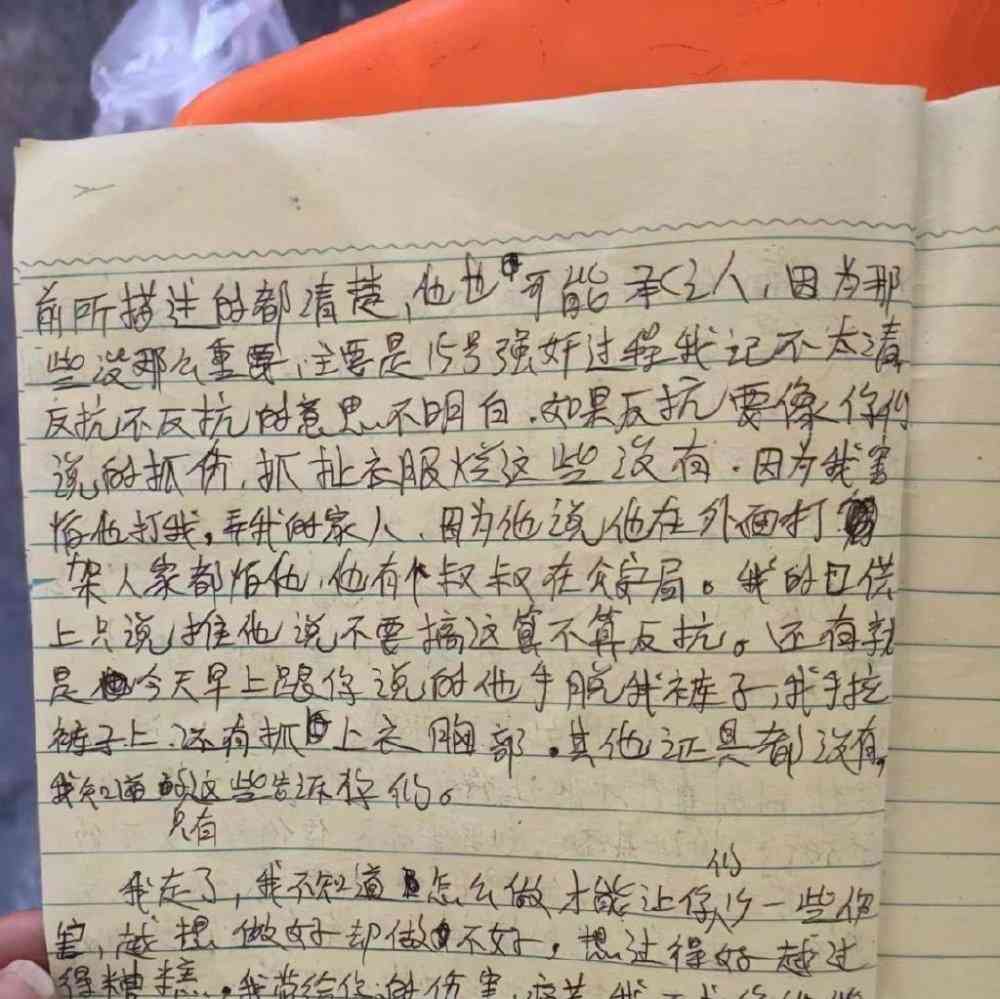 前所描述的都清楚,他也可能承认人,因为那
些没那么重要,主要是15号强奸过程我记不太清
反抗不反抗的意思不明白.如果反抗要像你们
说的抓伤,抓扯衣服烂这些没有.因为我害
怕他打我,弄我的家人.因为他说他在外面打
架人家都怕他,他有个叔叔在公安局。我的口供
上只说推他说不要搞这算不算反抗。还有就
是今天早上跟你说的他手脱我裤子,我手拉
裤子上.还有抓上衣胸部.其他证具都没有,
我知道的这些告诉你们。
只有
我走了,我不知道怎么做才能让你们少一些伤
害,越想做好却做不好,想过得好越过
得糟糕.我带给你的伤害